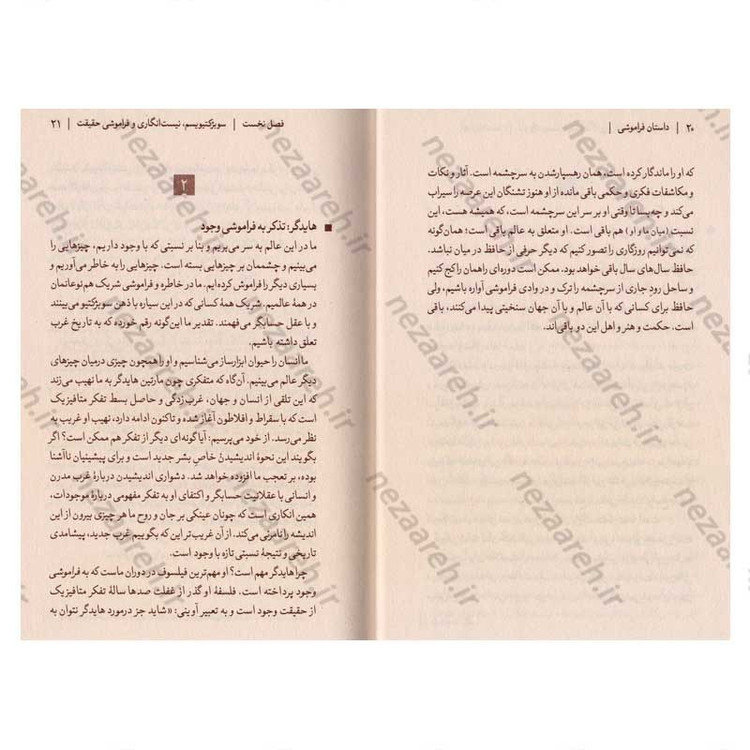 ۲۰ | داستان فراموشی |
که او را ماندگار کرده است، همان رهسپارشدن به سرچشمه است. آثار و نکات
و مکاشفات فکری و حکمی باقی مانده از او هنوز تشنگان این عرصه را سیراب
می‌کند و چه‌بسا تا وقتی او بر سر این سرچشمه است، که همیشه هست، این
نسبت (میان ما و او) هم باقی است. او متعلق به عالم باقی است؛ همان‌گونه
که نمی‌توانیم روزگاری را تصور کنیم که دیگر حرفی از حافظ در میان نباشد.
حافظ سال‌های سال باقی خواهد بود. ممکن است دوره‌ای راهمان را کج کنیم
و ساحل رود جاری از سرچشمه را ترک و در وادی فراموشی آواره باشیم، ولی
حافظ برای کسانی که با آن عالم و با آن جهان سنخیتی پیدا می‌کنند، باقی
است. حکمت و هنر و اهل این دو باقی‌اند.
فصل نخست | سوبژکتیویسم، نیست‌انگاری و فراموشی حقیقت | ۲۱
۲
هایدگر: تذکر به فراموشی وجود
ما در این عالم به سر می‌بریم و بنا بر نسبتی که با وجود داریم، چیزهایی را
می‌بینیم و چشممان بر چیزهایی بسته است. چیزهایی را به خاطر می‌آوریم و
بسیاری دیگر را فراموش کرده‌ایم. ما در خاطره و فراموشی شریک هم‌نوعانمان
در همهٔ عالمیم. شریک همهٔ کسانی که در این سیاره با ذهن سوبژکتیو می‌بینند
و با عقل حسابگر می‌فهمند. تقدیر ما این‌گونه رقم خورده که به تاریخ غرب
تعلق داشته باشیم.
ما انسان را حیوان ابزارساز می‌شناسیم و او را همچون چیزی درمیان چیزهای
دیگر عالم می‌بینیم. آن‌گاه که متفکری چون مارتین هایدگر به ما نهیب می‌زند
که این تلقی از انسان و جهان، غرب‌زدگی و حاصل بسط تفکر متافیزیک
است که با سقراط و افلاطون آغاز شده و تاکنون ادامه دارد، نهیب او غریب به
نظر می‌رسد. از خود می‌پرسیم: آیا گونه‌ای دیگر از تفکر هم ممکن است؟ اگر
بگویند این نحوهٔ اندیشیدن خاصِ بشر جدید است و برای پیشینیان ناآشنا
بوده، بر تعجب ما افزوده خواهد شد. دشواری اندیشیدن دربارهٔ غرب مدرن
و انسانی با عقلانیت حسابگر و اکتفای او به تفکر مفهومی دربارهٔ موجودات،
همین انکاری است که چونان عینکی بر جان و روح ما هر چیزی بیرون از این
اندیشه را نامرئی می‌کند. از آن غریب‌تر این که بگوییم غرب جدید، پیشامدی
تاریخی و نتیجهٔ نسبتی تازه با وجود است.
چرا هایدگر مهم است؟ او مهم‌ترین فیلسوف در دوران ماست که به فراموشی
وجود پرداخته است. فلسفهٔ او گذر از غفلت صدها سالهٔ تفکر متافیزیک
از حقیقت وجود است و به تعبیر آوینی: «شاید جز درمورد هایدگر نتوان به
nezaareh.ir
nezaareh.ir
nezaareh.ir
nezaareh.ir
nezaareh.ir
nezaareh.ir